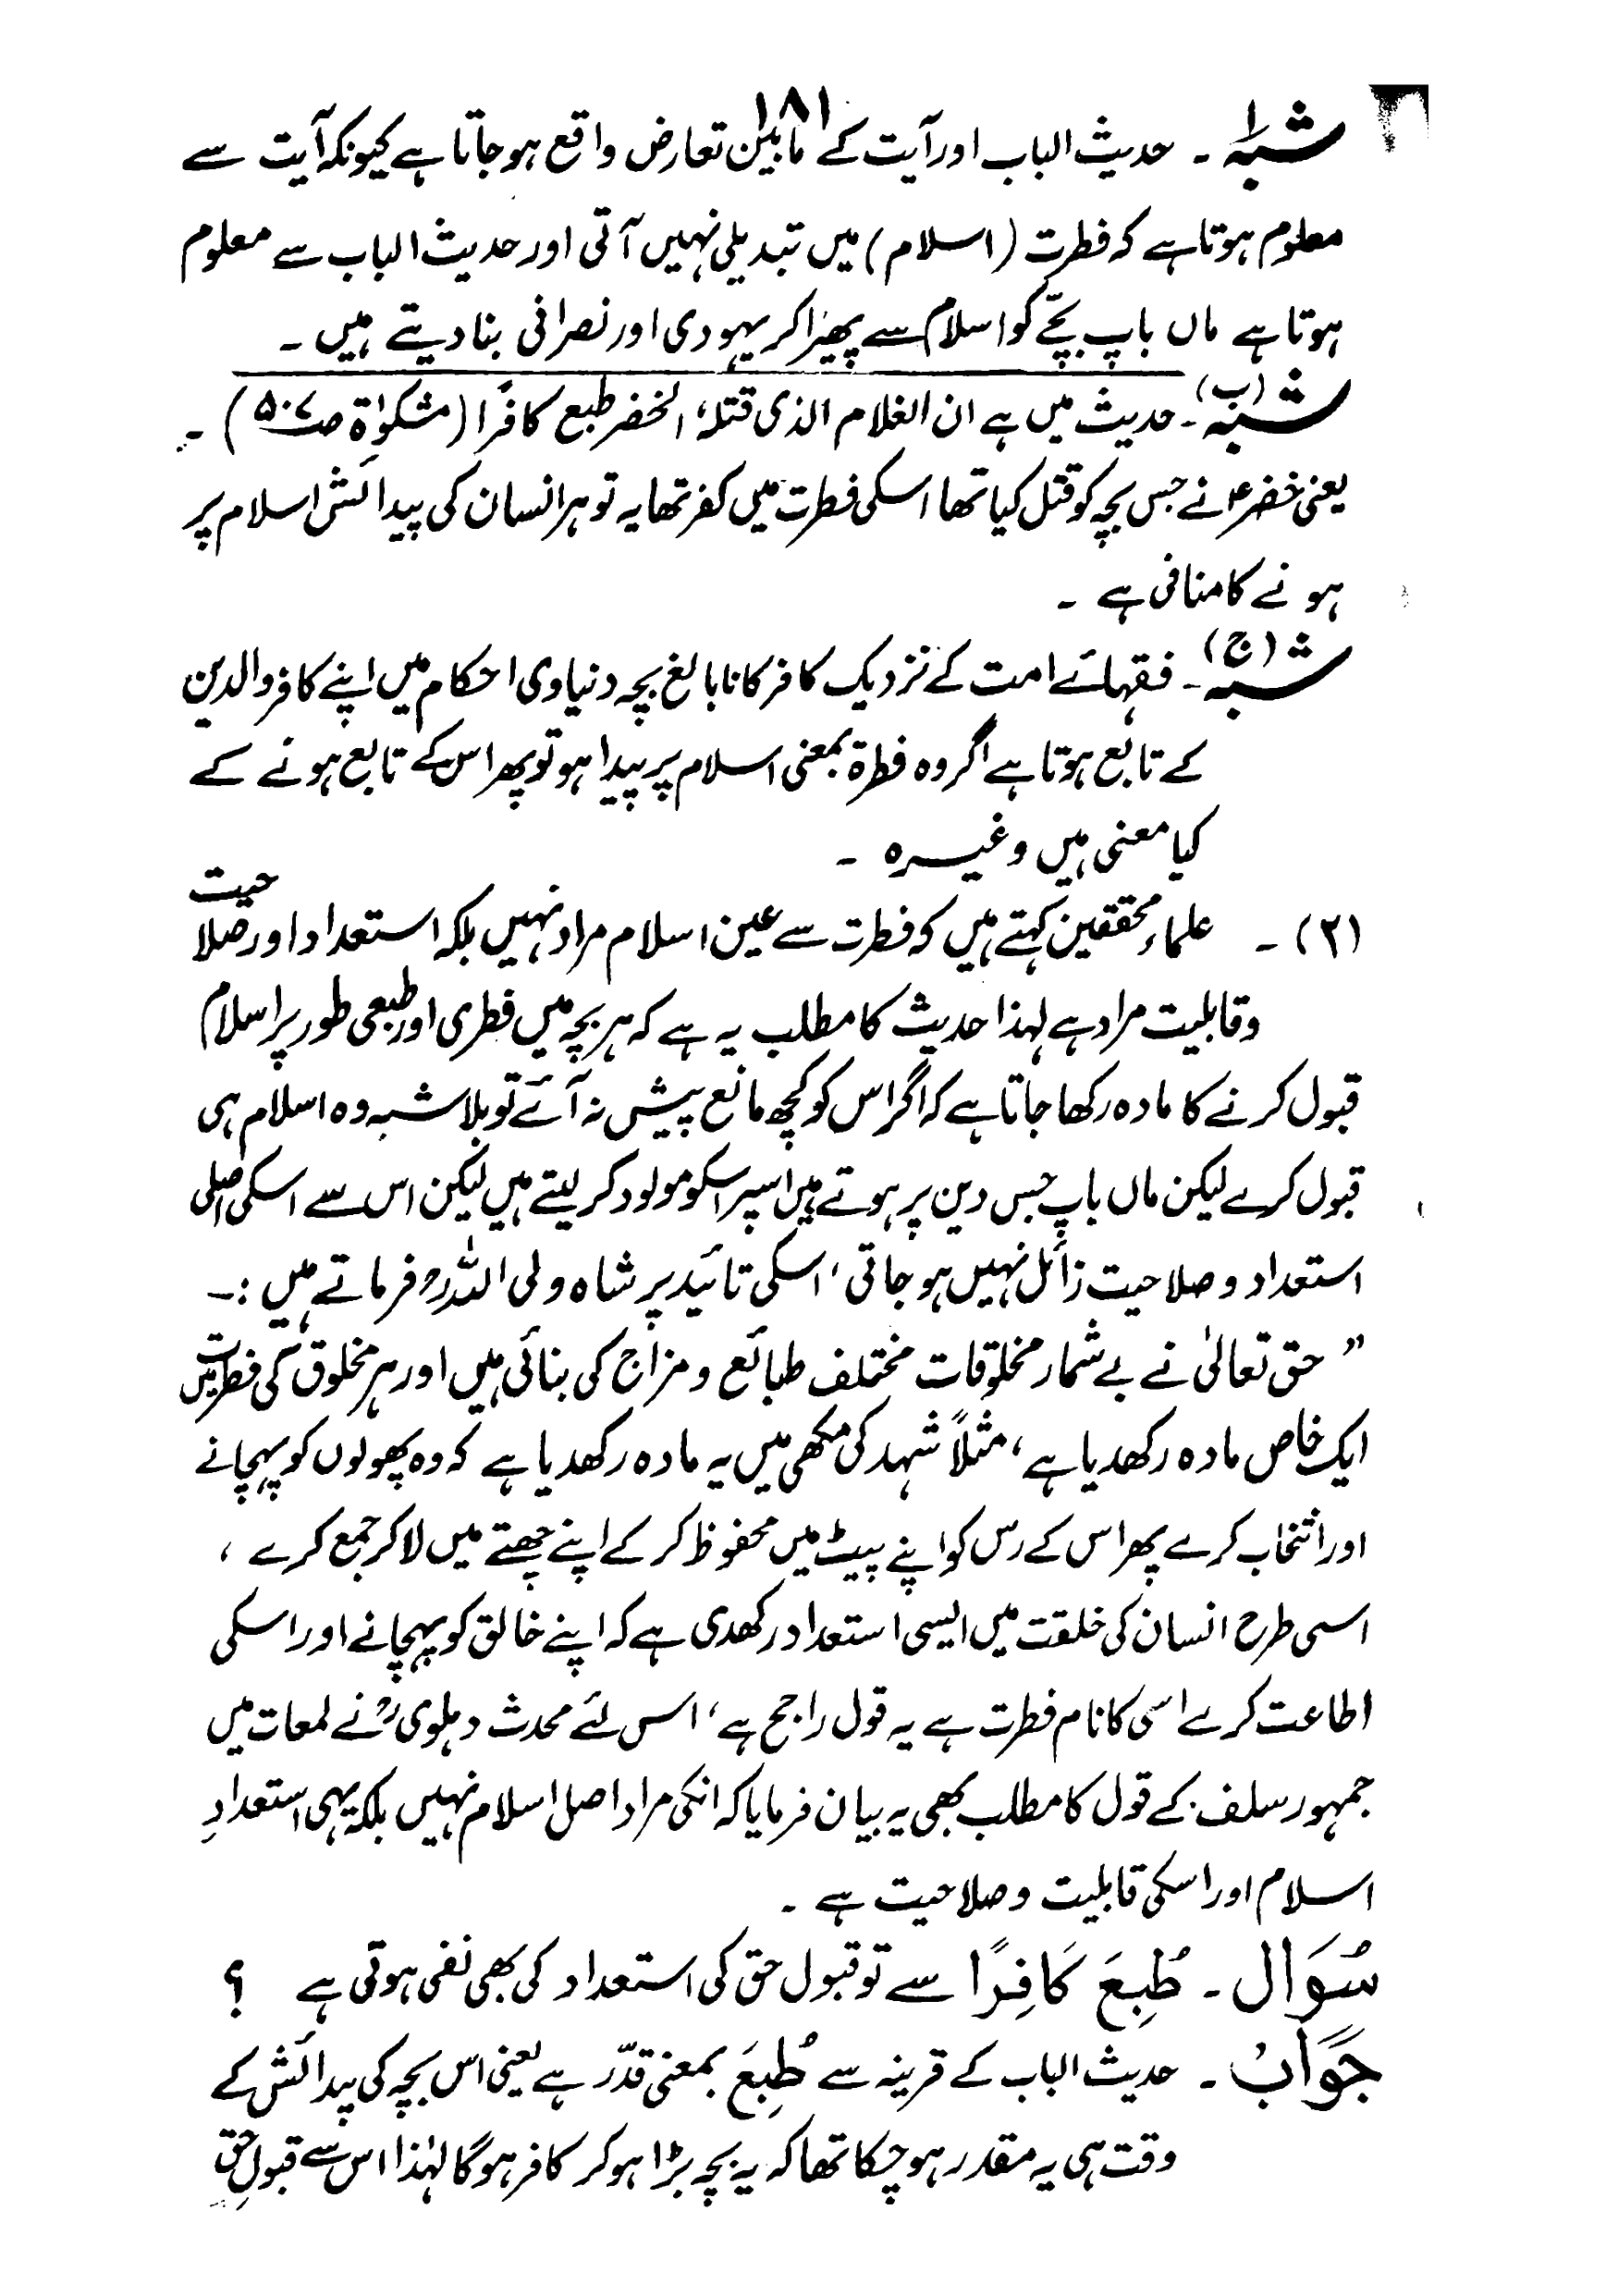 ۱۸۱
شبہ ا ۔ حدیث الباب اور آیت کے مابین تعارض واقع ہو جاتا ہے کیونکہ آیت سے
معلوم ہوتا ہے کہ فطرت (اسلام) میں تبدیلی نہیں آتی اور حدیث الباب سے معلوم
ہوتا ہے ماں باپ بچّے کو اسلام سے پھیرا کر یہودی اور نصرانی بنا دیتے ہیں ۔
شبہ (ب) ۔ حدیث میں ہے ان الغلام الذی قتلہ الخضر طبع کافرًا (مشکوٰۃ صـ ۵۰۷) ۔
یعنی خضرؑ نے جس بچہ کو قتل کیا تھا اسکی فطرت میں کفر تھا یہ تو ہر انسان کی پیدائش اسلام پر
ہونے کا منافی ہے ۔
شبہ (ج) ۔ فقہائے امت کے نزدیک کافر کا نابالغ بچہ دنیاوی احکام میں اپنے کافر والدین
کے تابع ہوتا ہے اگر وہ فطرۃ بمعنی اسلام پر پیدا ہو تو پھر اس کے تابع ہونے کے
کیا معنی ہیں وغیرہ ۔
(۲) ۔ علماء محققین کہتے ہیں کہ فطرت سے عین اسلام مراد نہیں بلکہ استعداد اور صلاحیت
وقابلیت مراد ہے لہذا حدیث کا مطلب یہ ہے کہ ہر بچہ میں فطری اور طبعی طور پر اسلام
قبول کرنے کا مادہ رکھا جاتا ہے کہ اگر اس کو کچھ مانع پیش نہ آئے تو بلا شبہ وہ اسلام ہی
قبول کرے لیکن ماں باپ جس دین پر ہوتے ہیں اسپر اسکو مولود کر لیتے ہیں لیکن اس سے اسکی اصلی
استعداد و صلاحیت زائل نہیں ہو جاتی، اسکی تائید پر شاہ ولی اللہؒ فرماتے ہیں :۔
” حق تعالیٰ نے بے شمار مخلوقات مختلف طبائع و مزاج کی بنائی ہیں اور ہر مخلوق کی فطرت میں
ایک خاص مادہ رکھدیا ہے، مثلاً شہد کی مکھی میں یہ مادہ رکھدیا ہے کہ وہ پھولوں کو پہچانے
اور انتخاب کرے پھر اس کے رس کو اپنے پیٹ میں محفوظ کر کے اپنے چھتے میں لا کر جمع کرے ،
اسی طرح انسان کی خلقت میں ایسی استعداد رکھدی ہے کہ اپنے خالق کو پہچانے اور اسکی
اطاعت کرے اسی کا نام فطرت ہے یہ قول راجح ہے، اس لئے محدث دہلویؒ نے لمعات میں
جمہور سلف کے قول کا مطلب بھی یہ بیان فرمایا کہ انکی مراد اصل اسلام نہیں بلکہ یہی استعدادِ
اسلام اور اسکی قابلیت وصلاحیت ہے ۔
سُوَال ۔ طُبِعَ کَافِرًا سے تو قبول حق کی استعداد کی بھی نفی ہوتی ہے ؟
جَوَابُ ۔ حدیث الباب کے قرینہ سے طُبِعَ بمعنی قدّر ہے یعنی اس بچہ کی پیدائش کے
وقت ہی یہ مقدر ہو چکا تھا کہ یہ بچہ بڑا ہو کر کافر ہوگا لہٰذا اس سے قبولِ حق